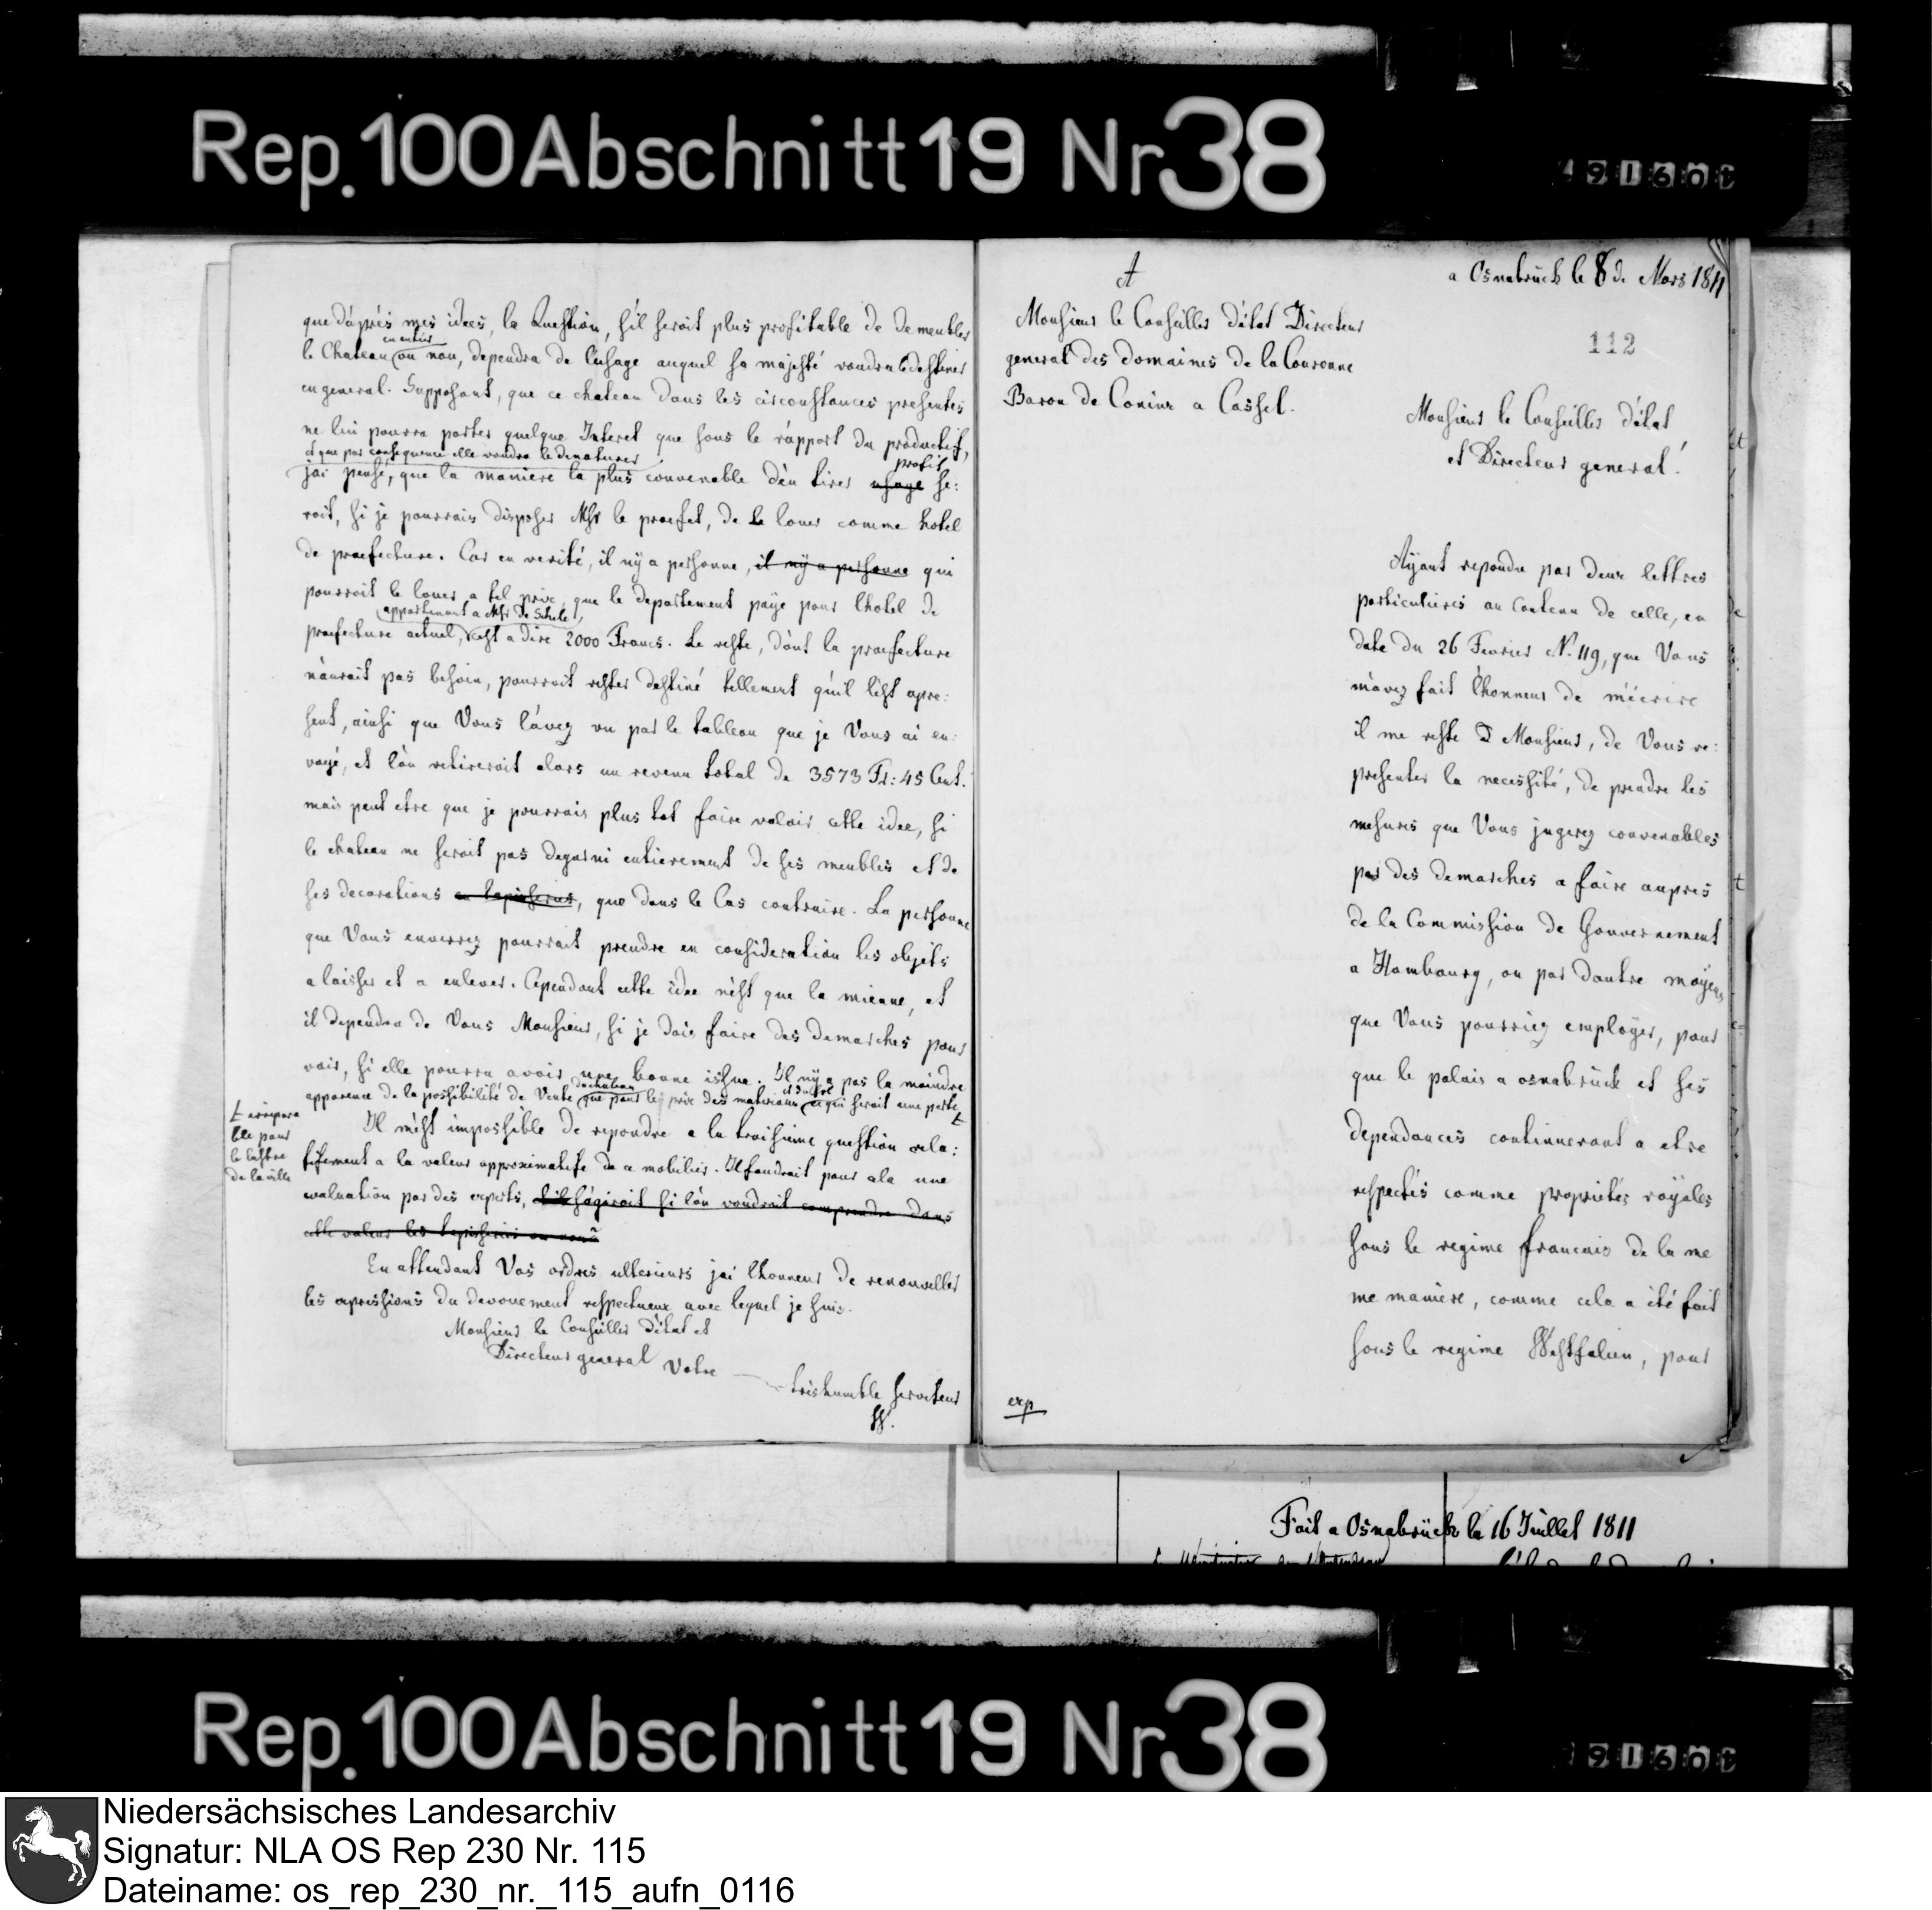 Rep. 100 Abschnitt 19 Nr 38
que d'aprés mes idees, la Question, s'il seroit plus profitable de demeubler
en entier
le Chateau ou non, dependra de l'usage auquel sa majesté voudra le destiner
en general. Supposant, que ce chateau dans les circonstances presentes
ne lui pourra porter quelque Interet que sous le rapport du productif,
et que par consequence elle voudra le denaturer
profit
jai pensé, que la maniere la plus convenable d'en tirer usage se:
roit, si je pourrais disposer Msr le praefet, de le louer comme hotel
de praefecture. Car en verité, il n'y a personne, il n'y a personne qui
pourroit le louer a tel prix, que le departement paÿe pour l'hotel de
appartenant a Msr de Schele
praefecture actuel, cest a dire 2000 Francs. Le reste, dont la praefecture
n'aurait pas besoin, pourroit rester destiné tellement qu'il l'est apre:
sent, ainsi que Vous l'avez vu par le tableau que je Vous ai en:
voÿé, et l'on retireroit alors un revenu total de 3573 Fr: 45 Cent.
mais peut etre que je pourrais plus tot faire valoir cette idee, si
le chateau ne seroit pas degarni entierement de ses meubles et de
ses decorations en tapisseries, que dans le Cas contraire. La personne
que Vous enverrez pourrait prendre en consideration les objets
a laisser et a enlever. Cependant cette idee n'est que la mienne, et
il dependra de Vous Monsieur, si je dois faire des demarches pour
voir, si elle pourra avoir une bonne issue. Il n'y a pas la moindre
du chateau
apparence de la possibilité de Vente que pour le prix des materiaux ce qui seroit une perte
t irrepara
ble pour
le lustre
de la ville
Il m'est impossible de repondre a la troisieme question rela:
tifement a la valeur approximatife de ce mobilier. Il faudrait pour cela une
evaluation par des experts, s'il s'agiroit si l'on voudroit comprendre dans
cette valeur les tapisseries ou non
En attendant Vos ordres ulterieurs jai l'honneur de renouveller
les expressions du devouement respectueux avec lequel je suis.
Monsieur le Conseiller d'etat et
Directeur general
Votre
treshumble serviteur
a Osnabrück le 8 de Mars 1811
112
A
Monsieur le Conseiller d'état Directeur
general des domaines de la Couronne
Baron de Coninx a Cassel.
Monsieur le Conseiller d'état
et Directeur general!
Ayant repondu par deux lettres
particulieres au contenu de celle, en
date du 26 Fevrier N. 119, que Vous
m'avez fait l'honneur de m'écrire
il me reste Monsieur, de Vous re:
presenter la necessité, de prendre les
mesures que Vous jugerez convenables
par des demarches a faire aupres
de la Commission de Gouvernement
a Hambourg, ou par d'autre moÿens
que Vous pourriez emploÿer, pour
que le palais a osnabrück et ses
dependances continueront a etre
respectés comme proprietés roÿales
sous le regime francais de la me
me maniere, comme cela a été fait
sous le regime Westfalien, pour
exp
Fait a Osnabrück le 16 Juillet 1811
Rep. 100 Abschnitt 19 Nr 38
Niedersächsisches Landesarchiv
Signatur: NLA OS Rep 230 Nr. 115
Dateiname: os_rep_230_nr._115_aufn_0116